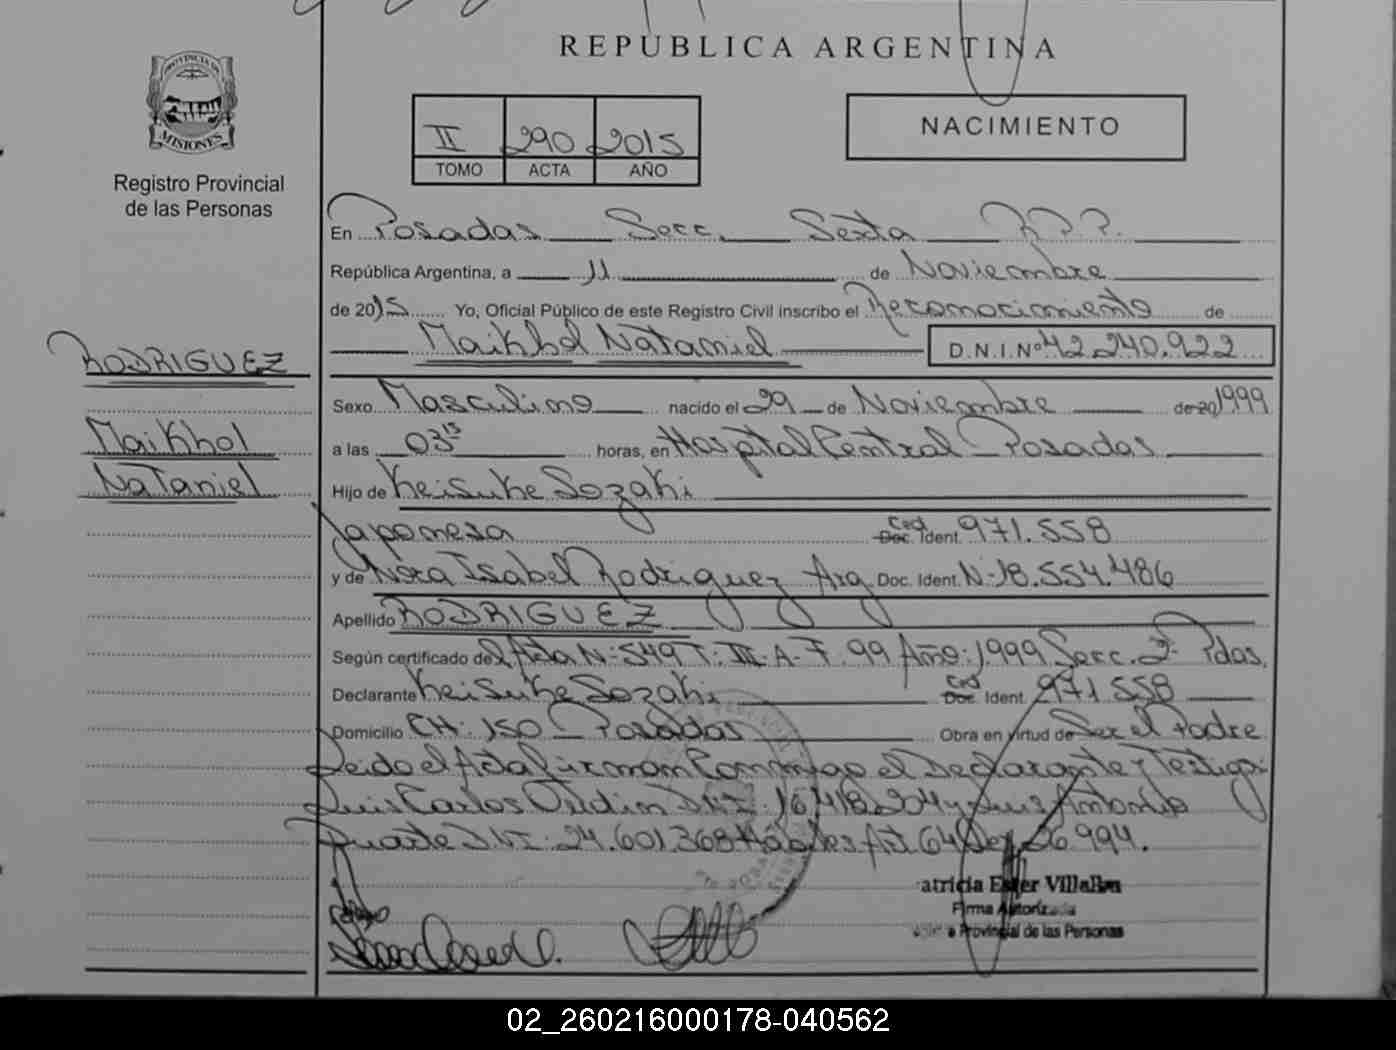 REPUBLICA ARGENTINA
PROVINCIA DE
MISIONES
Registro Provincial
de las Personas
II 290 2015
TOMO ACTA AÑO
NACIMIENTO
En Posadas Secc. Sexta R.P.P.
República Argentina, a 11 de Noviembre
de 2015 Yo, Oficial Público de este Registro Civil inscribo el Reconocimiento de
Maikhol Nataniel D.N.I.Nº 42.240.922
RODRIGUEZ
Maikhol
Nataniel
Sexo Masculino nacido el 29 de Noviembre de 20 1999
a las 03 15 horas, en Hospital Central Posadas
Hijo de Keisuke Sozaki
Japonesa Ced. Doc. Ident. 971.558
y de Nora Isabel Rodriguez Arg. Doc. Ident. N- 18.554.486
Apellido RODRIGUEZ
Según certificado del Acta N-: 549 T: III- A- F. 99 Año: 1999 Secc. 2ª Pdas.
Declarante Keisuke Sozaki Ced Doc. Ident. 971.558
Domicilio CH: 150 - Posadas Obra en virtud de Ser el Padre
Leido el Acta firman Conmigo el Declarante y Testigos
Luis Carlos D.N.I: 16.418.204 y Luis Antonio
Duarte D.N.I: 24.601.368 Hábiles Art. 64 Ley 26.994.
atricia Ester Villalba
Firma Autorizada
Provincial de las Personas
02_260216000178-040562